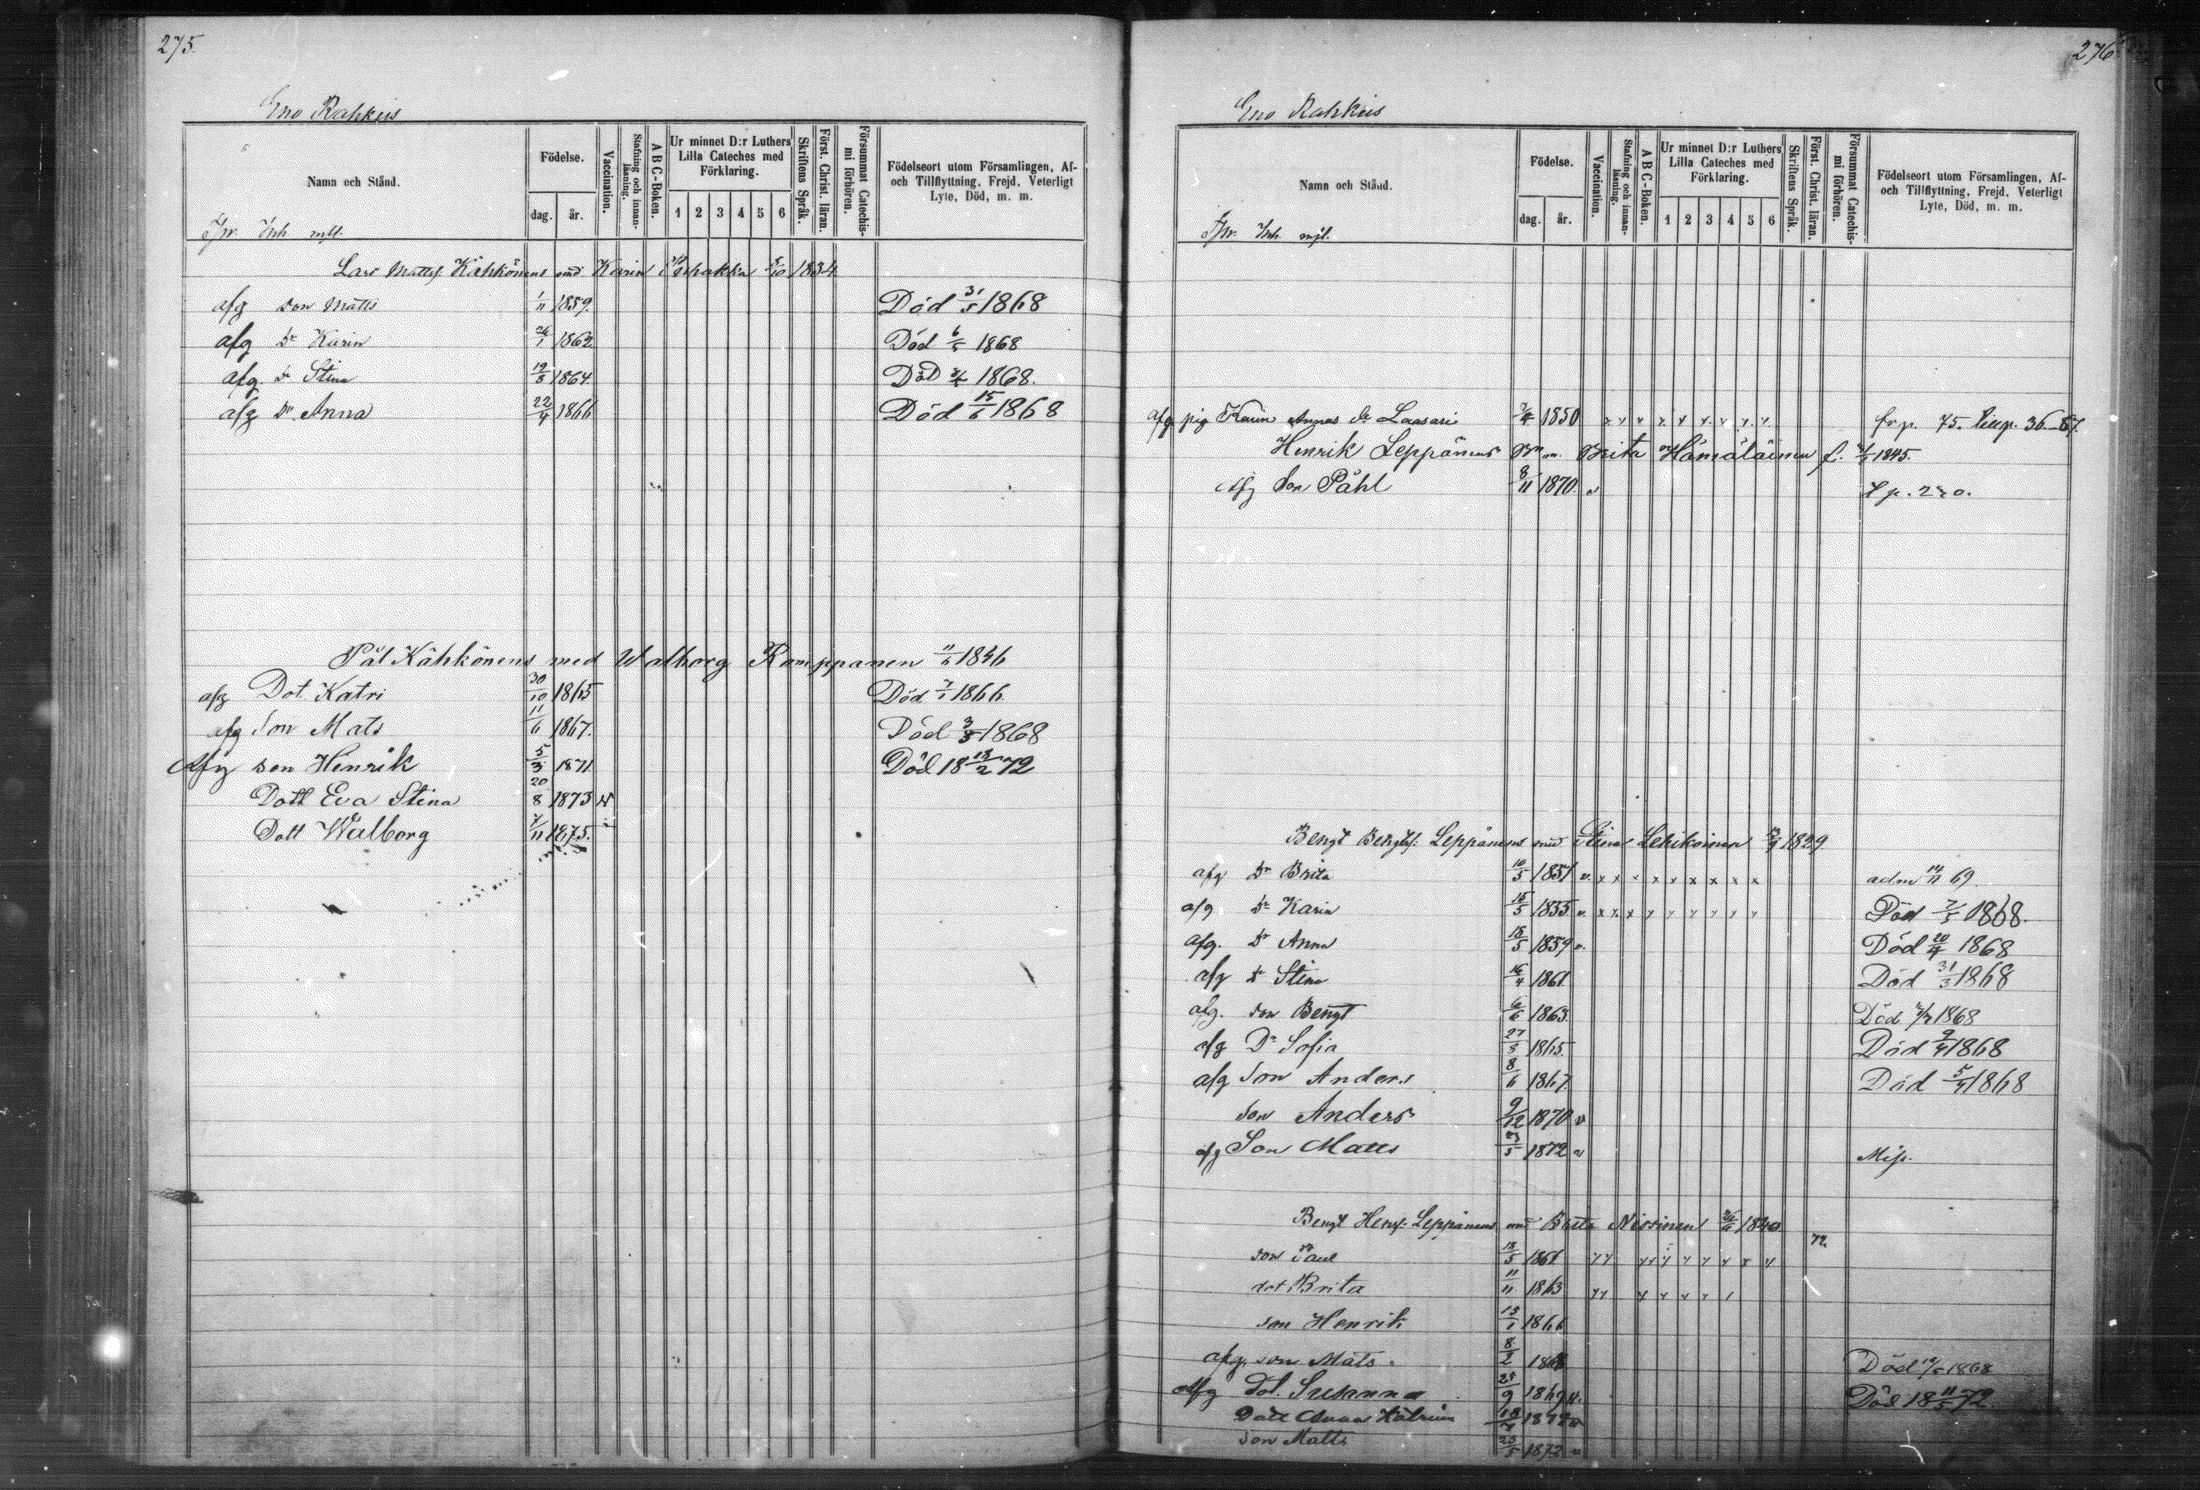 275.
Eno Rahkeis
Namn och Stånd.
Födelse.
dag. år.
Vaccination.
Stafning och innan-läsning.
A B C-Boken.
Ur minnet D:r Luthers Lilla Cateches med Förklaring.
1 2 3 4 5 6
Skriftens Språk.
Först. Christ. läran.
Försummat Catechis-mi förhören.
Födelseort utom Församlingen, Af- och Tillflyttning, Frejd, Veterligt Lyte, Död, m. m.
Lars Mattss. Kähkönens med Karin 5/10 1834
afg son Matts 1/11 1859. Död 31/5 1868
afg Dr Karin 1862 Död 6/5 1868
afg Dr Stina 19/3 1864 Död 1868.
afg Dr. Anna 22/4 1866 Död 15/6 1868
Pål Kähkönens med Walborg Romppanen 11/6 1846
afg Dot. Katri 30/10 1865 Död 7/1 1866
afg Son Mats 11/6 1867. Död 3/5 1868
Afg son Henrik 5/3 1871. Död 18 13/2 72
Dott Eva Stina 20/8 1873 v
Dott Walborg 7/11 1875.
276
Eno Rahkeis
Namn och Stånd.
Födelse.
dag. år.
Vaccination.
Stafning och innan-läsning.
A B C-Boken.
Ur minnet D:r Luthers Lilla Cateches med Förklaring.
1 2 3 4 5 6
Skriftens Språk.
Först. Christ. läran.
Försummat Catechis-mi förhören.
Födelseort utom Församlingen, Af- och Tillflyttning, Frejd, Veterligt Lyte, Död, m. m.
afg pig Karin Annas dr Laasari 1850 fr p. 75. till p. 36.-67.
Henrik Leppänens m. Brita Hämäläinen f. 1845.
Afg Son Påhl 8/11 1870. v
Bengt Bengtss. Leppänens med Stina Lehikoinen 1829
afg Dr Brita 10/5 1851 v. x x x x x x x x adm 14/11 69.
afg Dr Karin 15/5 1855 v. x x x Död 7/5 1868.
afg. Dr Anna 15/5 1859 v. Död 20/4 1868
afg Dr Stina 16/4 1861. Död 31/3 1868
afg. son Bengt 6/6 1863. Död 1868
afg Dr Sofia 27/8 1865. Död 9/4 1868
afg Son Anders 8/6 1867. Död 5/4 1868
Son Anders 9/12 1870 v
afg Son Matts 23/5 1872 v Miss.
Bengt Henss. Leppänens med Brita Nissinen 1840
72.
son Paul 13/5 1861
dot Brita 11/11 1863
son Henrik 13/1 1866
afg. son Mats. 8/2 1868 Död 1868
Afg Dot. Susanna 25/9 1869 v. Död 18 11/5 72
Dott Anna Katrina 1872 v
Son Matts 23/5 1872 v